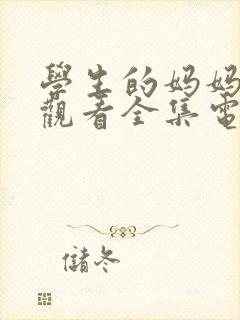 學生的妈妈
觀看全集電
儲冬